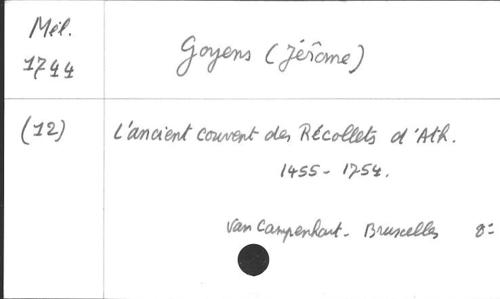 Mél.
1744
Goyens (Jérôme)
(12)
L'ancient couvent des Récollets d'Ath.
1455 - 1754.
Van Campenhout - Bruxelles 8=